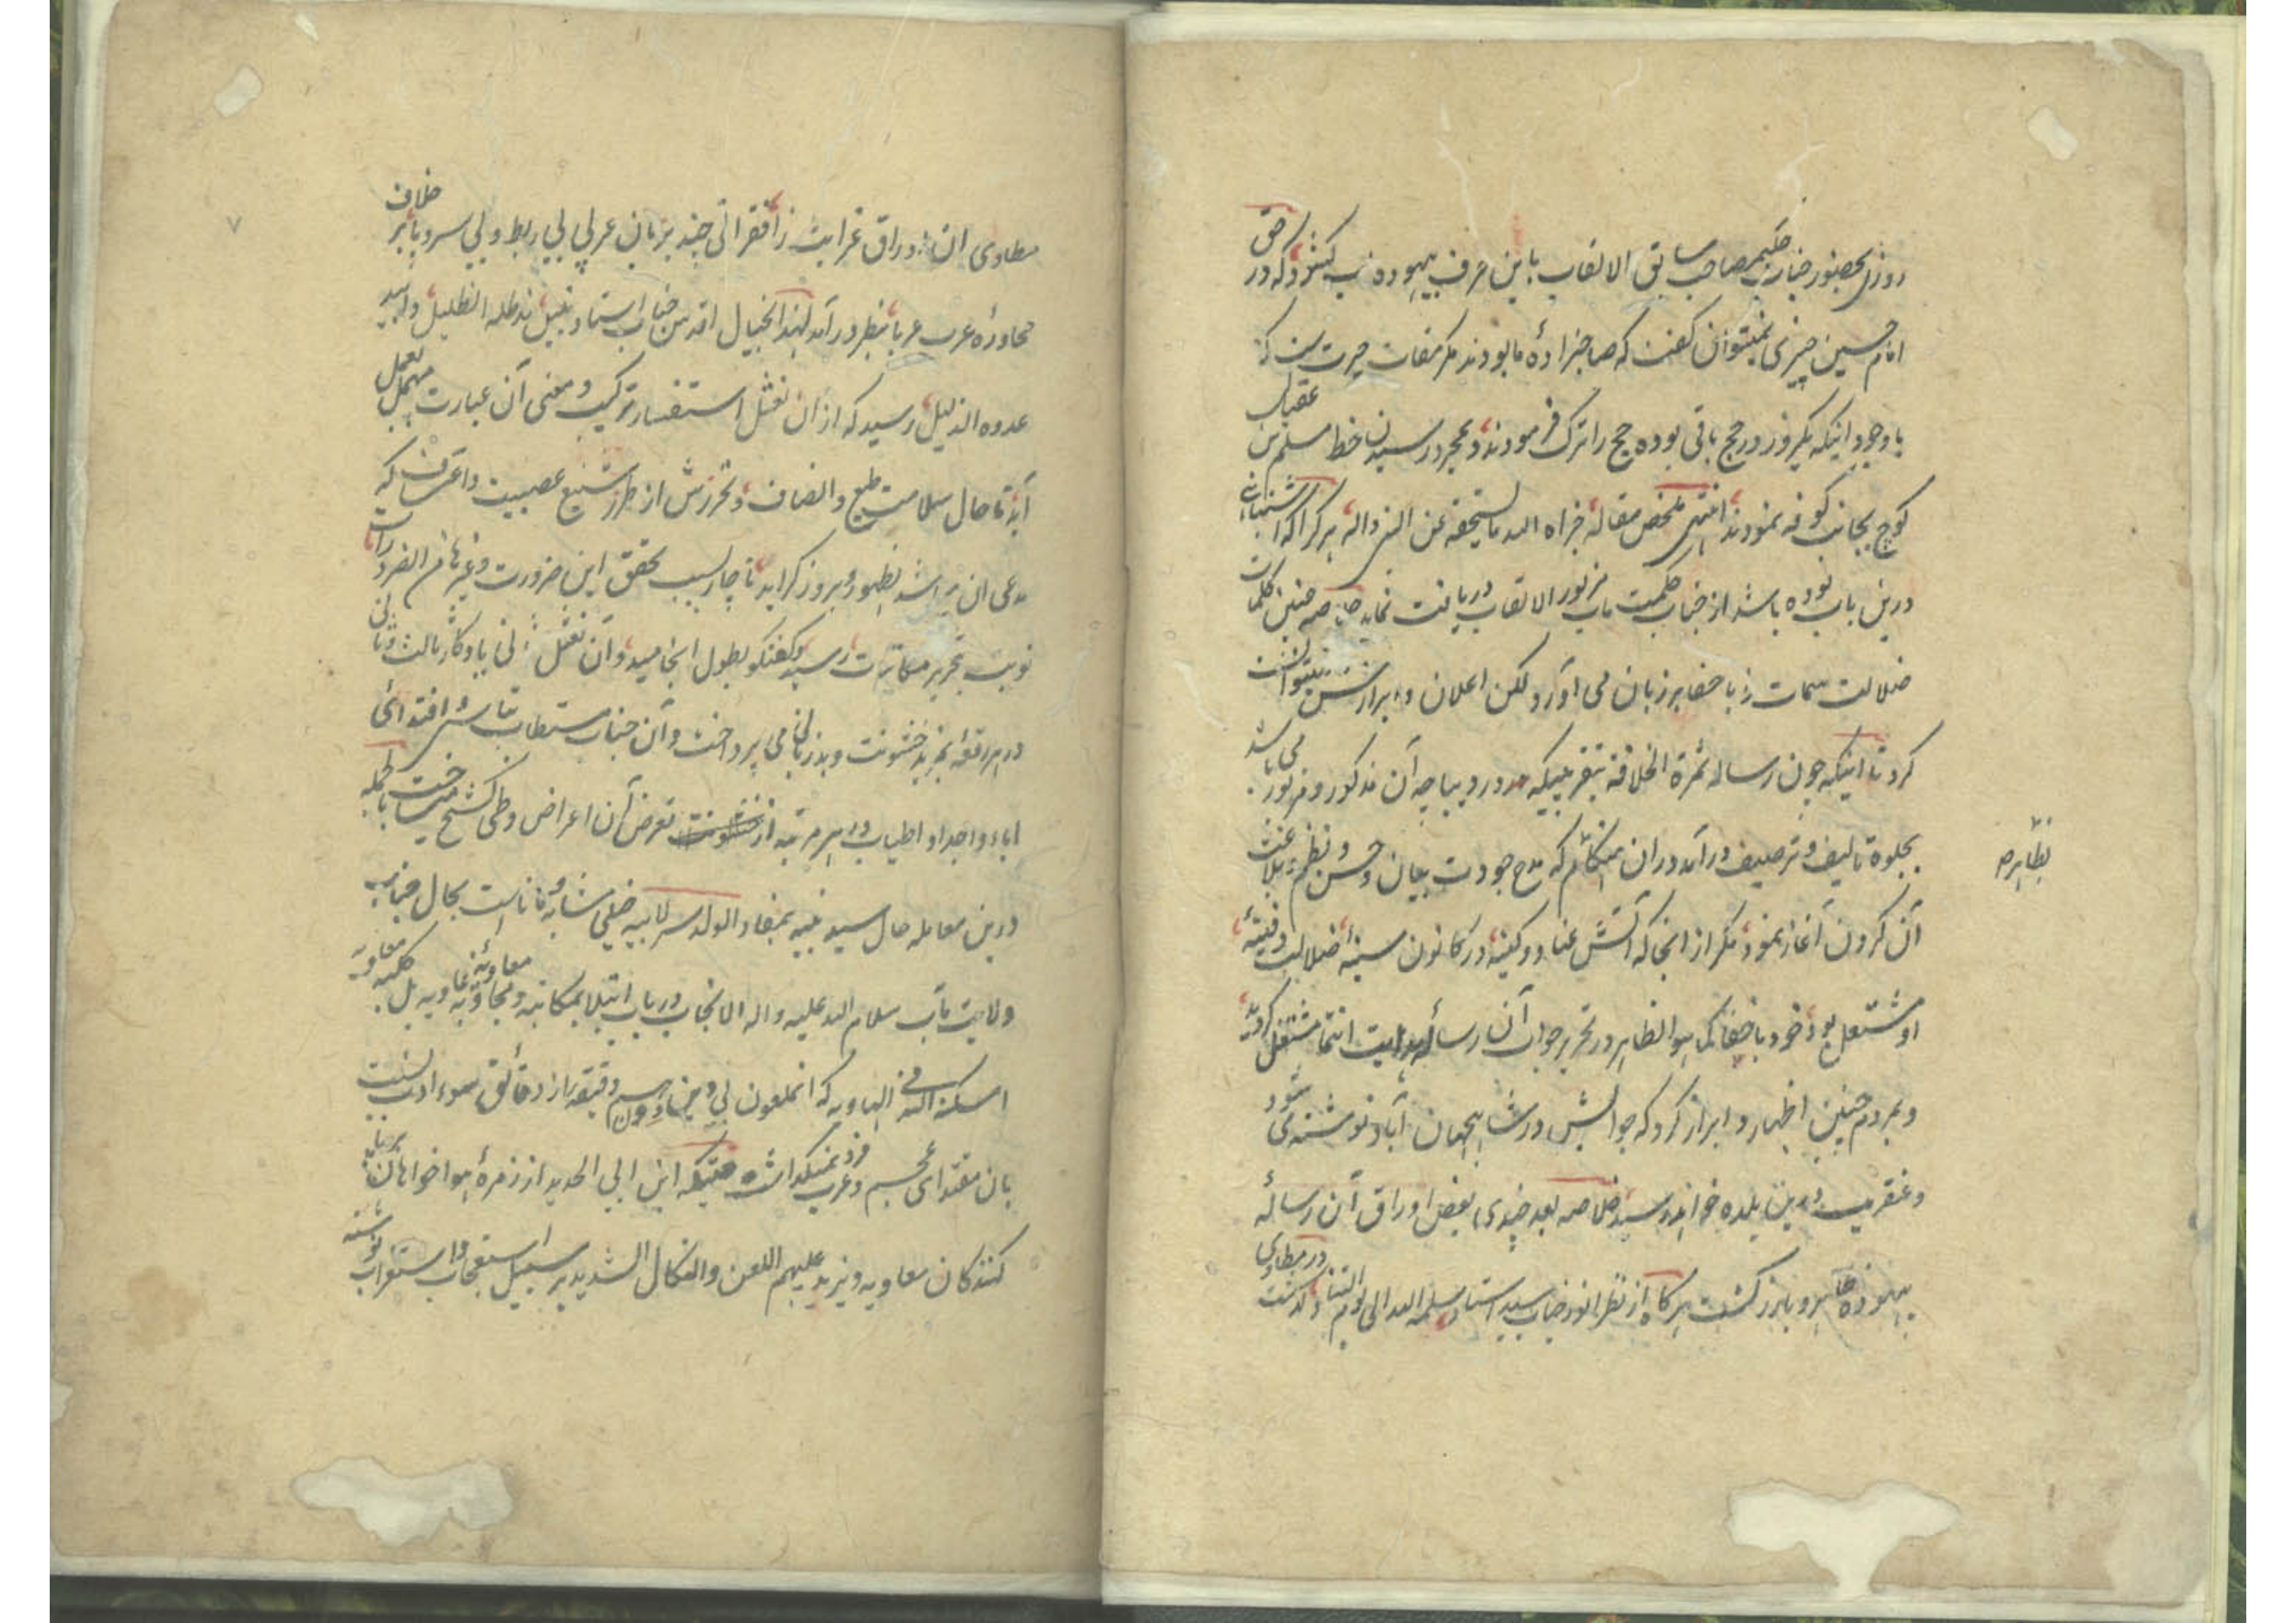 روزی بحضور جناب حکیم صاحب سابق الالقاب باین حرف بیهوده لب کشود که در حق
امام حسین چیزی نمیتوان گفت که صاحبزاده ما بودند مگر مقام حیرت ست که
باوجود اینکه یکروز در حج باقی بوده حج را ترک فرمودند و بمجرد رسیدن خط مسلم بن عقیل
کوچ بجانب کوفه نمودند انتهی ملخص مقاله جزاه الله ما یستحقه عن النبی واله هر کرا که اشتباهی
درین باب بوده باشد از جناب حکمت مآب مزبور الالقاب دریافت نماید خلاصه چنین کلمات
ضلالت سمات را باخفا بر زبان می آورد لکن اعلان و ابرازش نمیتوانست
کرد تا اینکه چون رساله ثمرة الخلافة بتقریبیکه در دیباچه آن مذکور و مزبور می باشد
بجلوه تالیف و ترصیف درآمد دران هنگام که مدح جودت بیان و حسن و نظم بلاغت
بظاهره
آن کردن آغاز نمود مگر از انجا که آتش عناد و کینه در کانون سینه ضلالت دفینه
او مشتعل بود خود باخفا کما هو الظاهر در تحریر جواب آن رساله هدایت انتما مشتغل گردید
و بمردم چنین اظهار و ابراز کرد که جوابش در شاهجهان آباد نوشته می شود
و عنقریب درین بلده خواهد رسید خلاصه بعد چندی بعض اوراق آن رساله
بیهوده ظاهر و بارز گشت هرگاه از نظر انور جناب سید استاد سلمه الله الی یوم التناد گذشت در مطاوی
مطاوی ان اوراق غرابت زا فقراتی چند بزبان عربی بی ربط و بی سروپا بر خلاف
محاوره عرب عربا بنظر درآمد لهذا بخیال اقدس جناب استاد نبیل مد ظله الظلیل و ابید
عدوه الذلیل رسید که از ان نعثل استفسار ترکیب و معنی آن عبارت مهمل بعمل
آید تا حال سلامت طبع و انصاف و تحرزش از طرز شنیع عصبیت و اعتساف که
مدعی ان می باشد بظهور و بروز گراید ناچار بسبب تحقق این ضرورت و غیرها من الضرورات
نوبت بتحریر مکاتبات رسید و گفتگو بطول انجامید و آن نعثل ثانی یادگار ثالث و ثانی
در هر رقعه بمزید خشونت و بدزبانی می پرداخت و آن جناب مستطاب بتاسی و اقتدای
اباء و اجداد اطیاب در هر مرتبه از تعرض آن اعراض و طی کشح میساخت بالجمله
درین معامله حال سید نبیه بمفاد الولد سر لابیه خیلی مشابه و ماناست بحال جناب
ولایت مآب سلام الله علیه واله الانجاب در باب ابتلا بمکاتبه و مجاوبه معاویه غاویه بل کلبه معاویه
اسکنه الله فی الهاویه که انملعون بی دین و دون هم دقیقه از دقائق سوء ادب نسبت
بان مقتدای عجم و عرب فرو نمیگذاشت حتیکه ابن ابی الحدید از زمره هواخواهان بر زبان
کنندگان معاویه و یزید علیهم اللعن والنکال الشدید بر سبیل استعجاب و استغراب نوشته